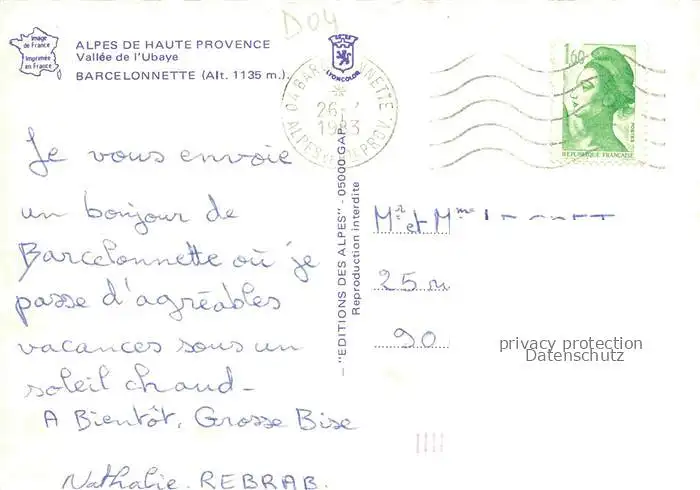 D04
Image
de France
Imprimée
en France
ALPES DE HAUTE PROVENCE
Vallée de l'Ubaye
BARCELONNETTE (Alt. 1135 m.).
LYONCOLOR
04 BAR NNETTE
26
1983
ALPES DE HTE PROV.
1,60
POSTES
REPUBLIQUE FRANÇAISE
Je vous envoie
un bonjour de
Barcelonnette où je
passe d'agréables
vacances sous un
soleil chaud -
A Bientôt, Grosse Bise
Nathalie. REBRAB.
"EDITIONS DES ALPES" - 05000 GAP
Reproduction interdite
Mr et Mme
25
90
privacy protection
Datenschutz